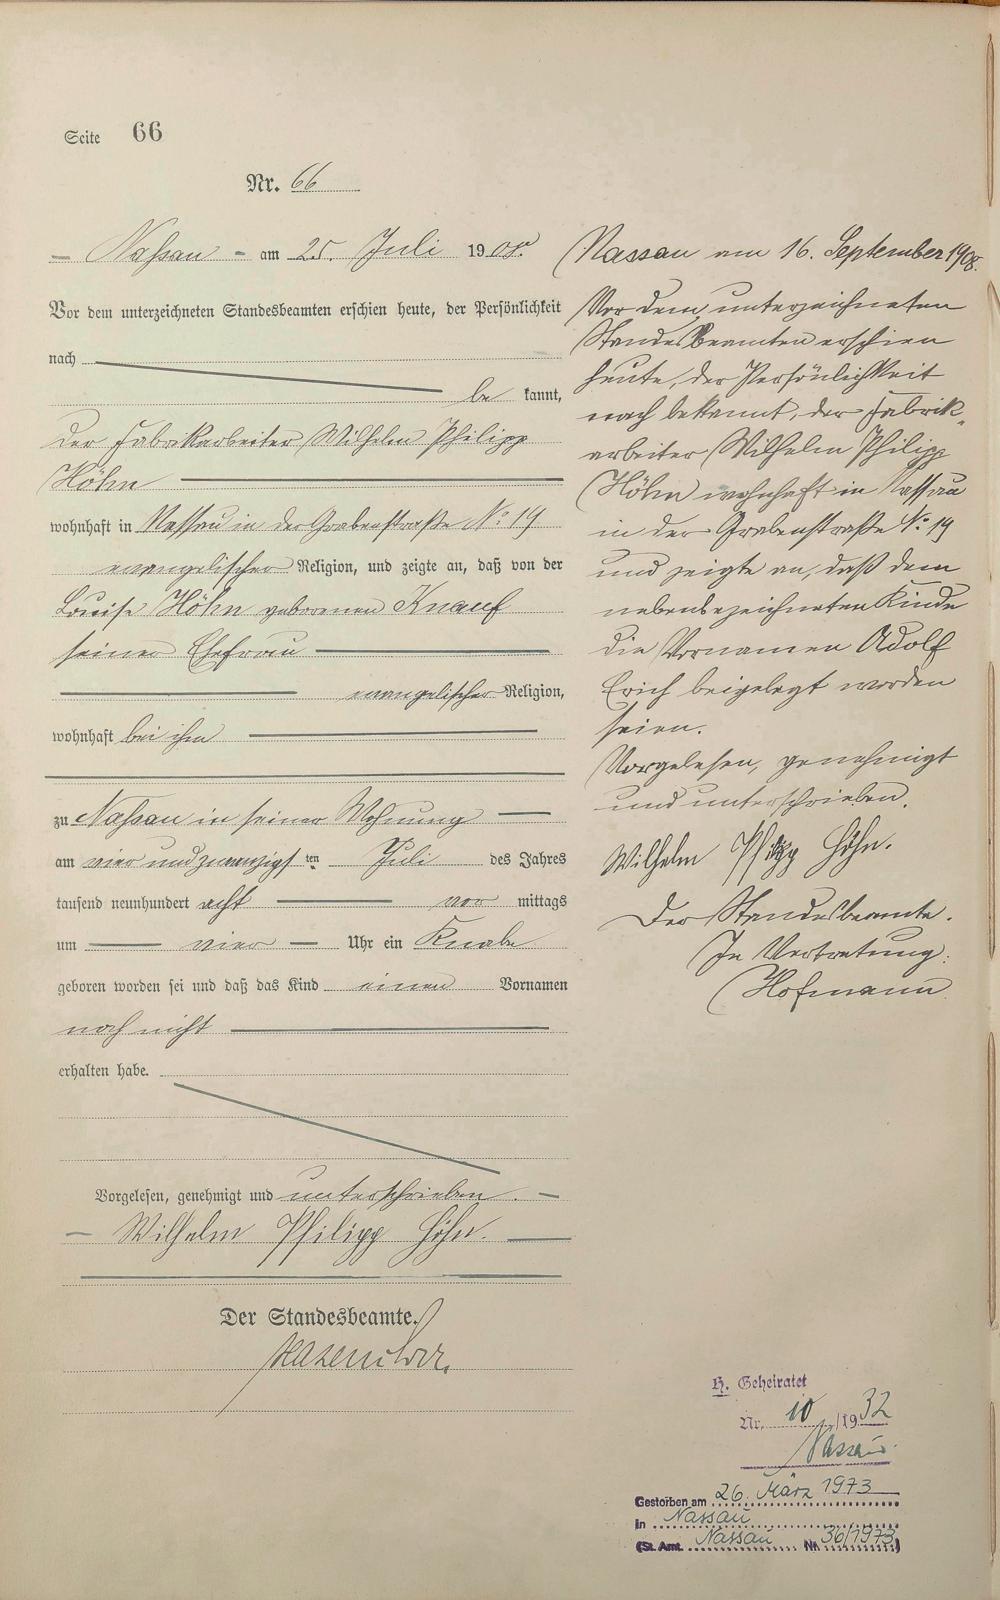 Seite 66
Nr. 66
Nassau am 25. Juli 1908.
Vor dem unterzeichneten Standesbeamten erschien heute, der Persönlichkeit
nach
be kannt,
der Fabrikarbeiter Wilhelm Philipp
Höhn
wohnhaft in Nassau in der Grabenstraße No 19
evangelischer Religion, und zeigte an, daß von der
Louise Höhn geborenen Knauf
seiner Ehefrau
evangelischer Religion,
wohnhaft bei ihm
zu Nassau in seiner Wohnung
am vier und zwanzigsten Juli des Jahres
tausend neunhundert acht vor mittags
um vier Uhr ein Knabe
geboren worden sei und daß das Kind einen Vornamen
noch nicht
erhalten habe.
Vorgelesen, genehmigt und unterschrieben.
Wilhelm Philipp Höhn.
Der Standesbeamte.
Nassau am 16. September 1908.
Vor dem unterzeichneten
Standesbeamten erschien
heute, der Persönlichkeit
nach bekannt, der Fabrik-
arbeiter Wilhelm Philipp
Höhn wohnhaft in Nassau
in der Grabenstraße No 19
und zeigte an, daß dem
nebenbezeichneten Kinde
die Vornamen Adolf
Erich beigelegt worden
seien.
Vorgelesen, genehmigt
und unterschrieben.
Wilhelm Philipp Höhn.
Der Standesbeamte.
In Vertretung:
Hofmann
Geheiratet
Nr. 10/1932
Nassau
Gestorben am 26. März 1973
in Nassau
(St. Amt. Nassau Nr. 36/1973)